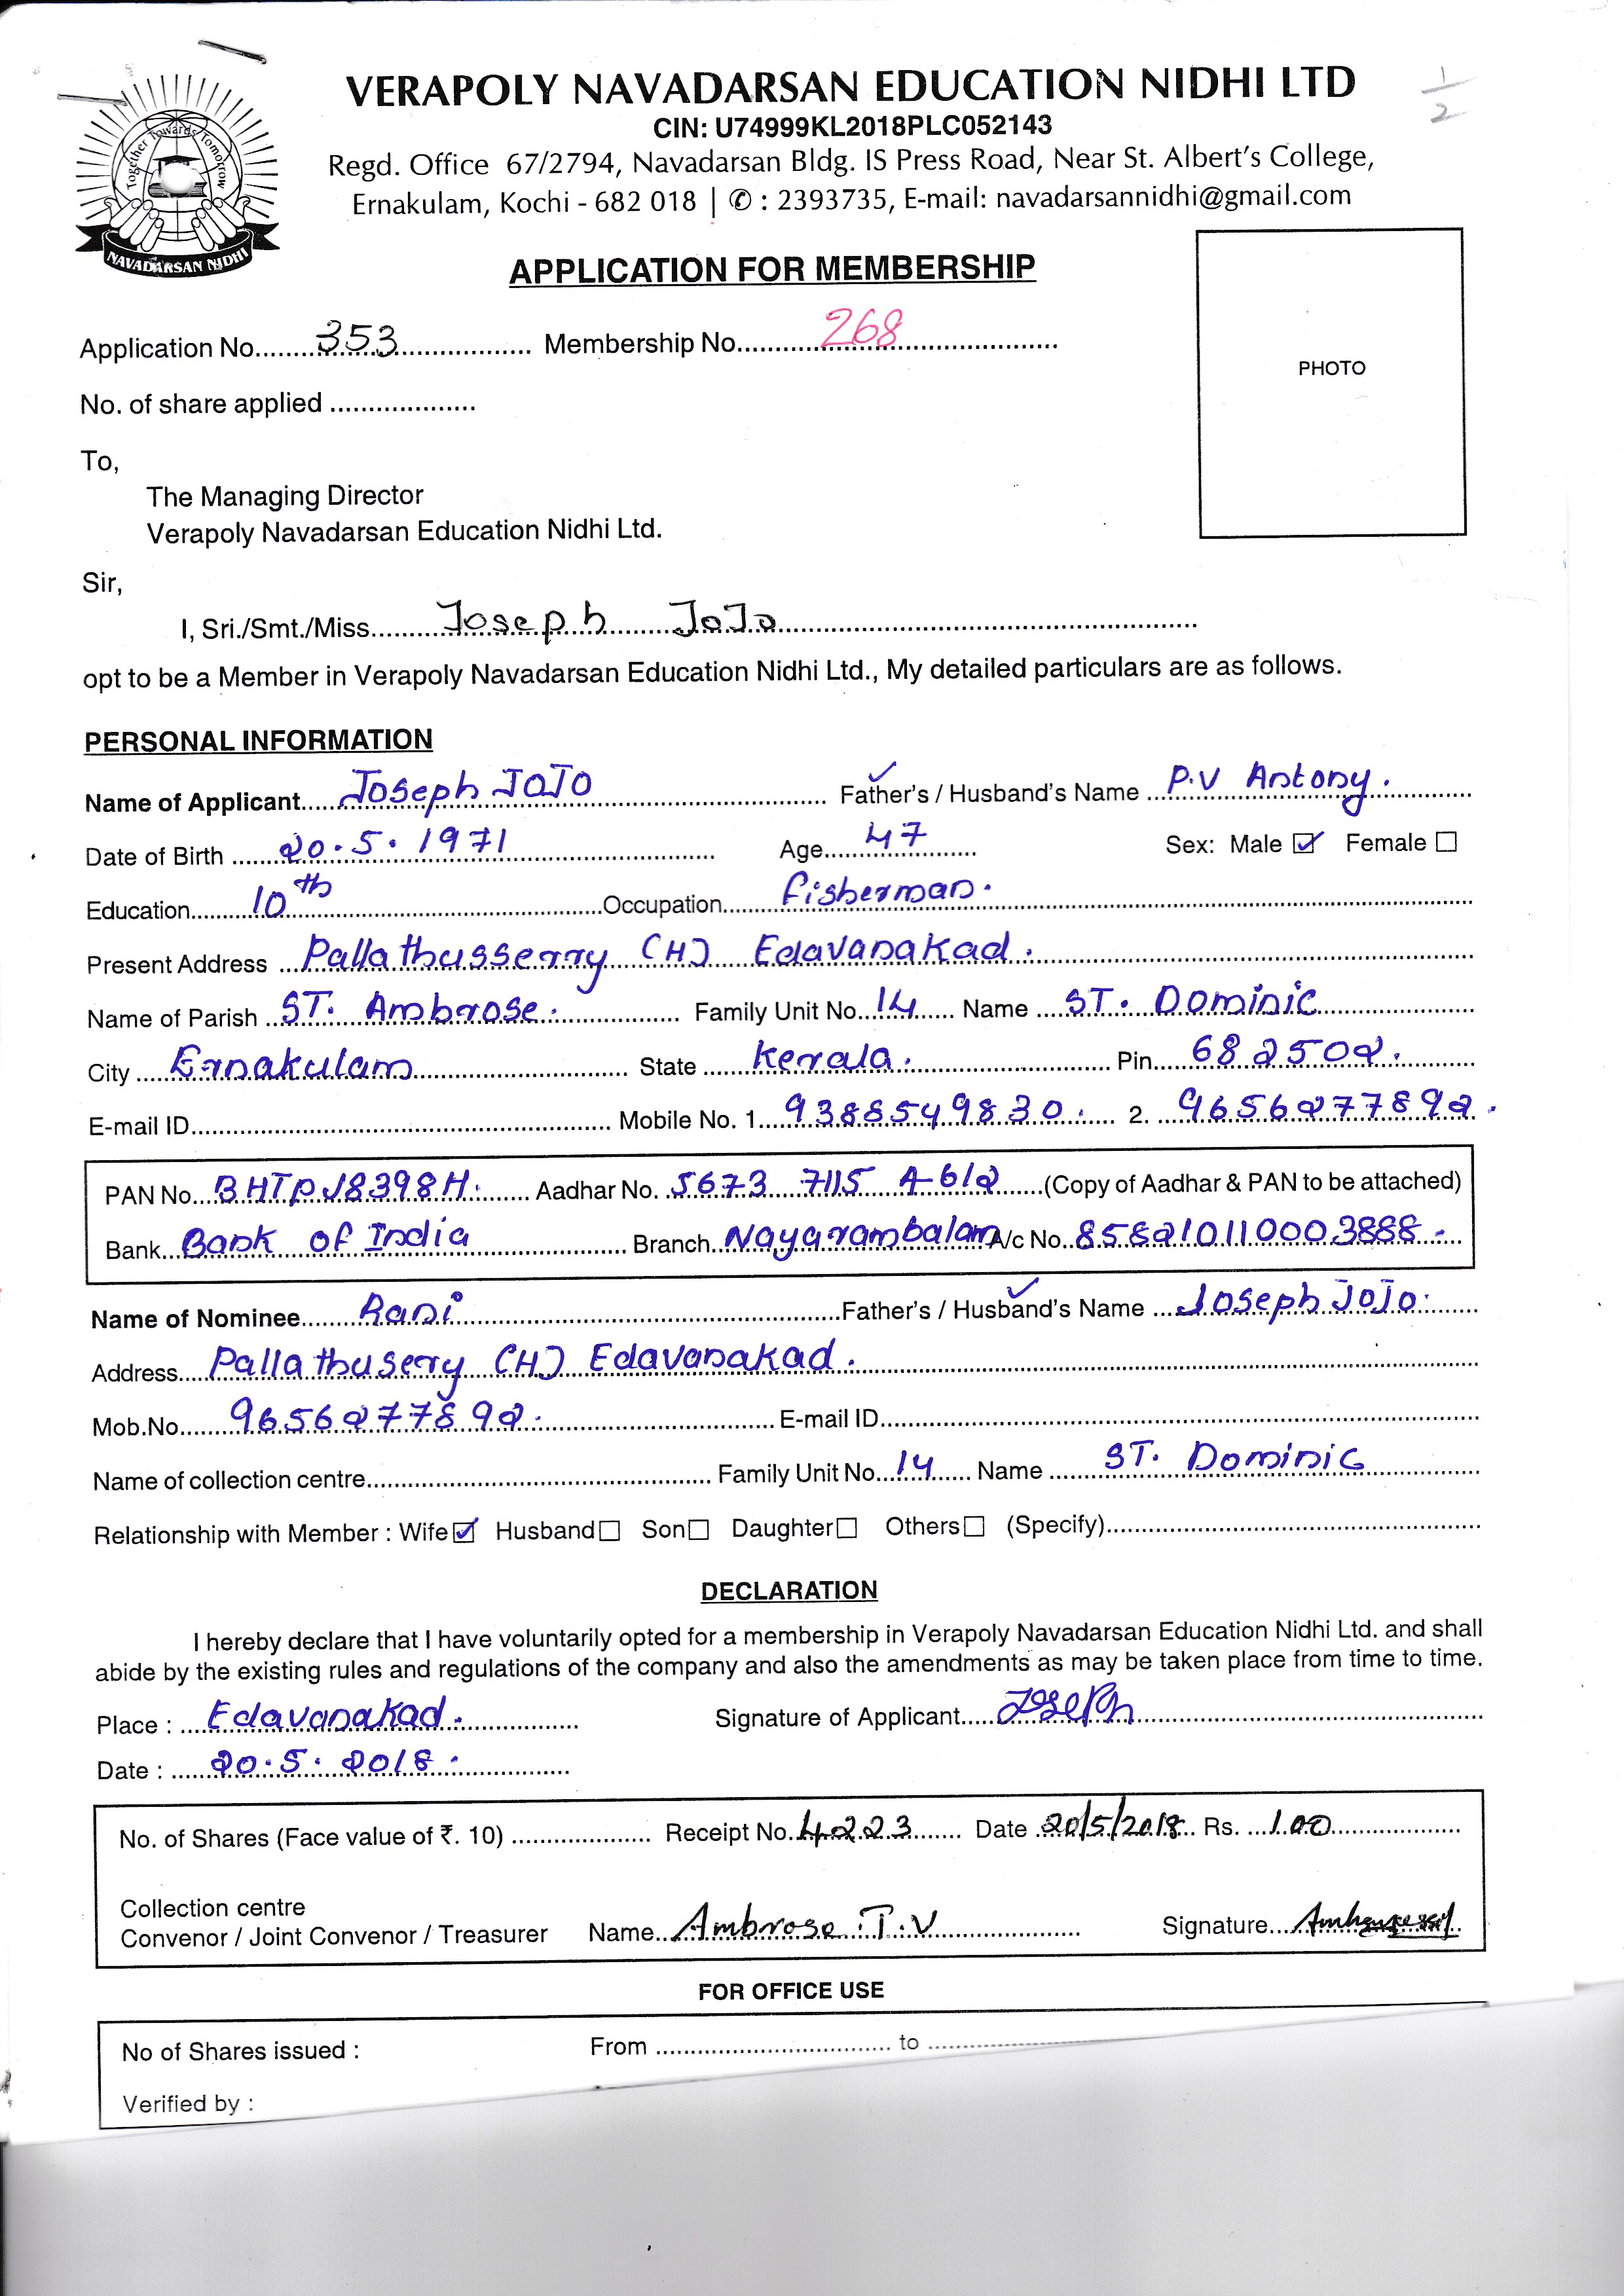 VERAPOLY NAVADARSAN EDUCATION NIDHI LTD
1/2
CIN: U74999KL2018PLC052143
Regd. Office 67/2794, Navadarsan Bldg. IS Press Road, Near St. Albert's College,
Ernakulam, Kochi - 682 018 | ✆ : 2393735, E-mail: navadarsannidhi@gmail.com
Together Towards Tomorrow
NAVADARSAN NIDHI
APPLICATION FOR MEMBERSHIP
Application No. 353 Membership No. 268
PHOTO
No. of share applied
To,
The Managing Director
Verapoly Navadarsan Education Nidhi Ltd.
Sir,
I, Sri./Smt./Miss. Joseph JoJo
opt to be a Member in Verapoly Navadarsan Education Nidhi Ltd., My detailed particulars are as follows.
PERSONAL INFORMATION
Name of Applicant Joseph JOJO Father's / Husband's Name P.V Antony.
Date of Birth 20.5.1971 Age 47 Sex: Male ☑ Female ☐
Education 10th Occupation Fisherman.
Present Address Pallathusserry (H) Edavanakad.
Name of Parish ST. Ambrose. Family Unit No. 14 Name ST. Dominic
City Ernakulam State Kerala. Pin 682502.
E-mail ID Mobile No. 1. 9388549830. 2. 9656277892.
PAN No. BHTPJ8398H. Aadhar No. 5673 7115 4612 (Copy of Aadhar & PAN to be attached)
Bank Bank of India Branch Nayarambalam A/c No. 858210110003888.
Name of Nominee Rani Father's / Husband's Name Joseph JoJo.
Address Pallathusery (H) Edavanakad.
Mob.No. 9656277892. E-mail ID
Name of collection centre Family Unit No. 14 Name ST. Dominic
Relationship with Member : Wife ☑ Husband ☐ Son ☐ Daughter ☐ Others ☐ (Specify)
DECLARATION
I hereby declare that I have voluntarily opted for a membership in Verapoly Navadarsan Education Nidhi Ltd. and shall
abide by the existing rules and regulations of the company and also the amendments as may be taken place from time to time.
Place : Edavanakad. Signature of Applicant Joseph
Date : 20.5.2018.
No. of Shares (Face value of ₹. 10) Receipt No. 4223 Date 20/5/2018 Rs. 100
Collection centre
Convenor / Joint Convenor / Treasurer Name Ambrose T.V Signature
FOR OFFICE USE
No of Shares issued : From to
Verified by :